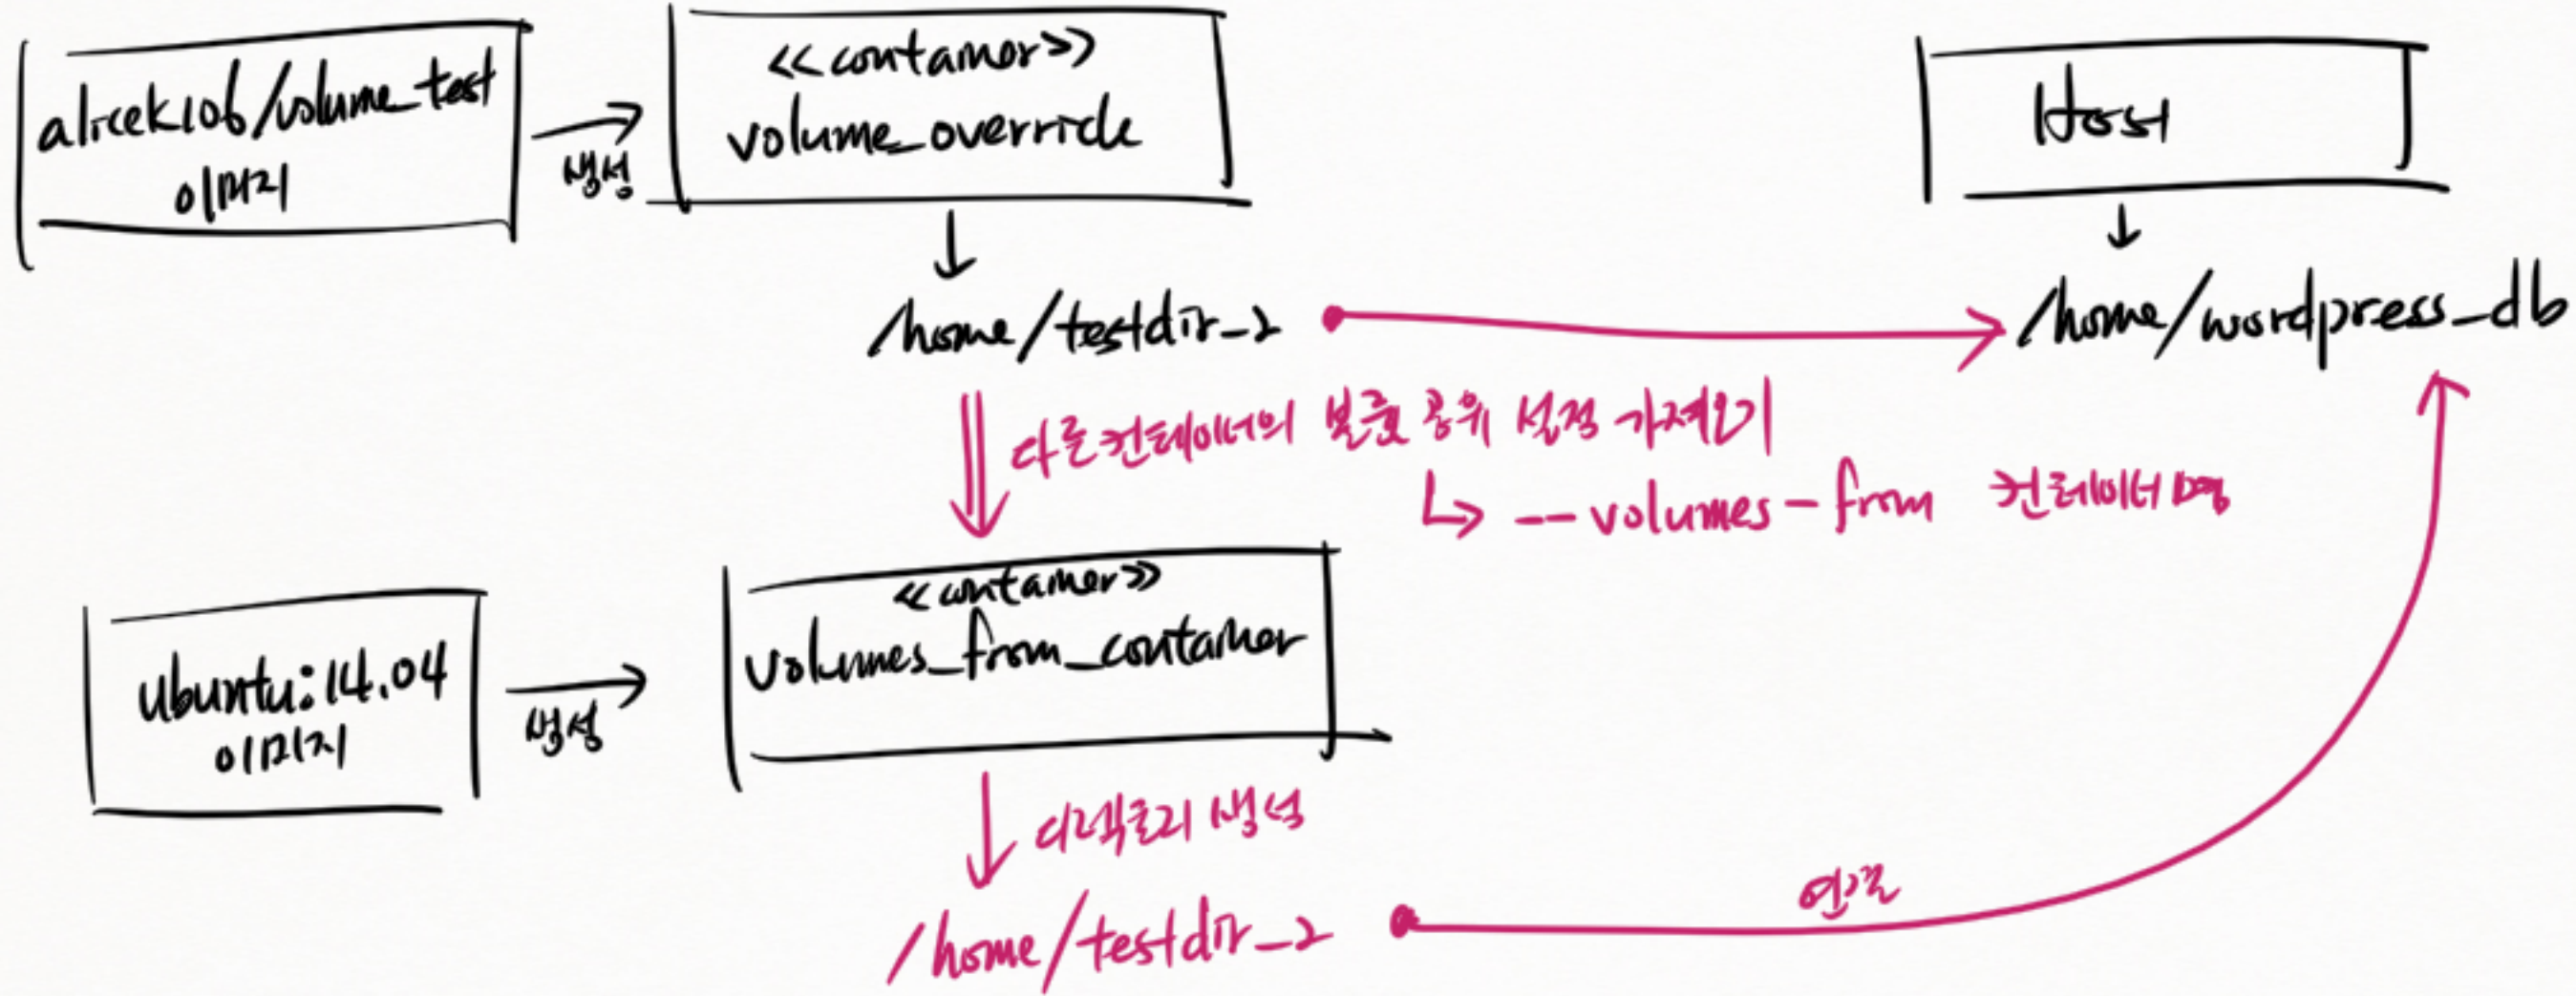 alicek106/volume_test
이미지
생성
<<container>>
volume_override
Host
/home/testdir_2
/home/wordpress_db
다른 컨테이너의 볼륨 공유 설정 가져오기
--volumes-from 컨테이너명
ubuntu:14.04
이미지
생성
<<container>>
volumes_from_container
디렉토리 생성
/home/testdir_2
연결